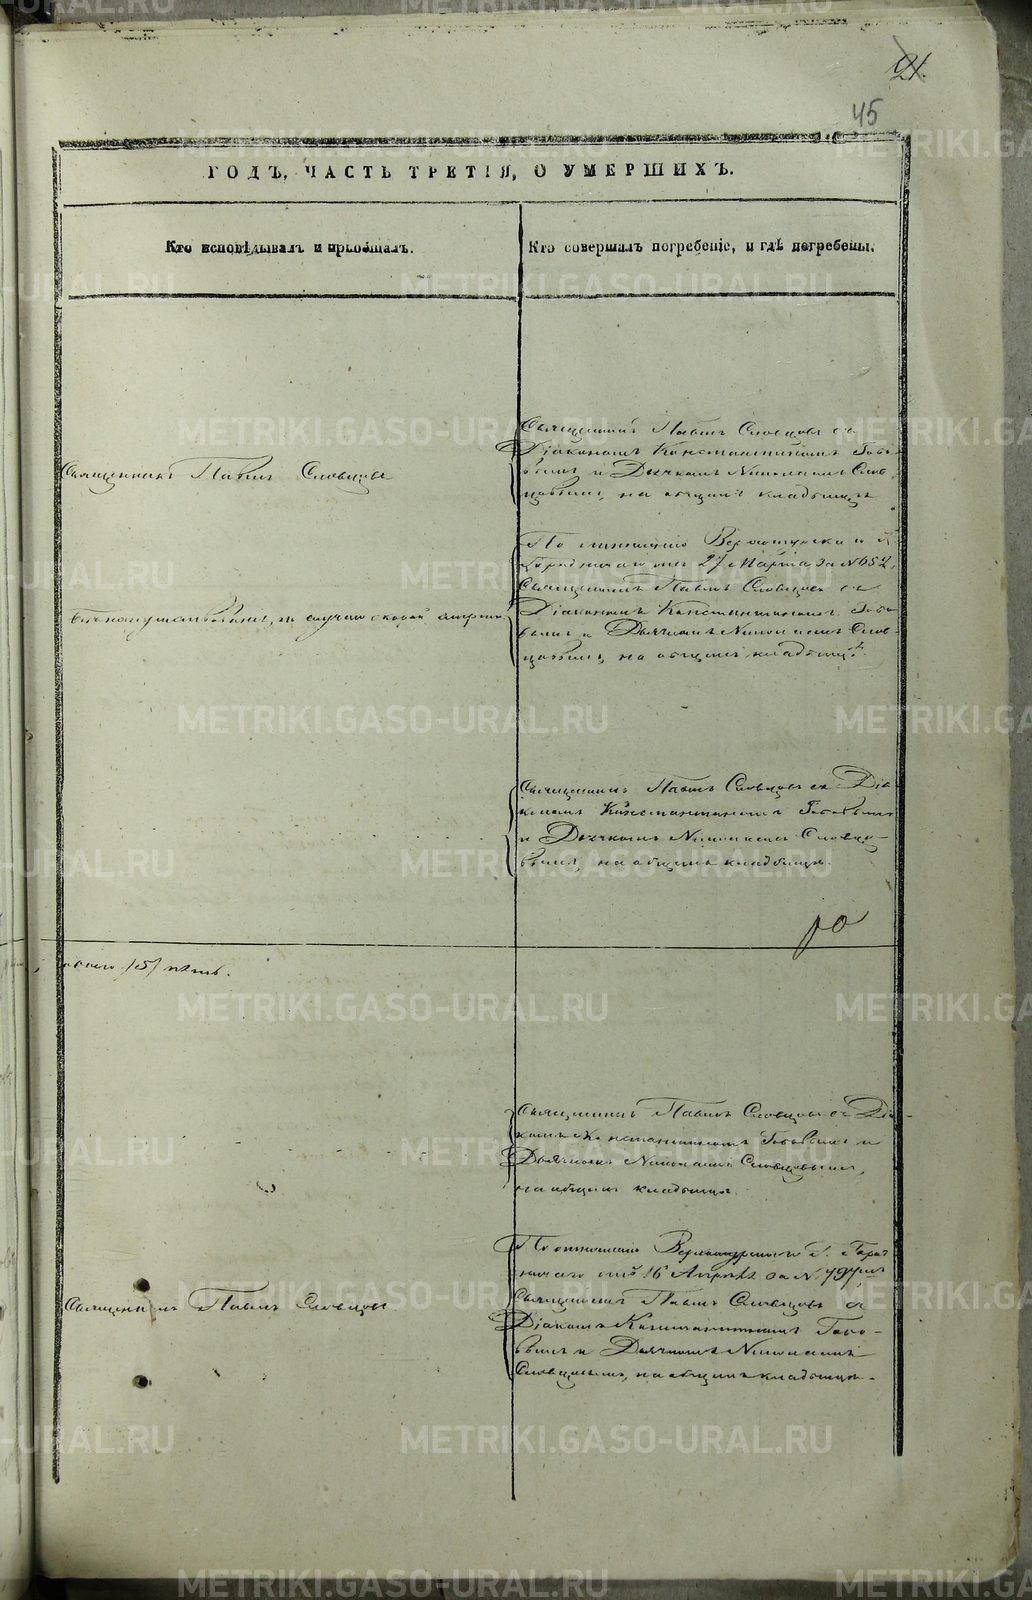 21.
45
ГОДЪ, ЧАСТЬ ТРЕТІЯ, О УМЕРШИХЪ.
Кто исповѣдывалъ и пріобщалъ.
Кто совершалъ погребеніе, и гдѣ погребены.
Священникъ Павелъ Словцовъ съ
Діакономъ Константиномъ
и Дьячкомъ Николаемъ Слов-
цовымъ, на общемъ кладбищѣ
Священникъ Павелъ Словцовъ
По отношенію
27 Марта за № 652,
Священникъ Павелъ Словцовъ съ
Діакономъ Константиномъ
и Дьячкомъ Николаемъ Слов-
цовымъ, на общемъ кладбищѣ.
по случаю скорой смерти.
Священникъ Павелъ Словцовъ съ Діа-
кономъ Константиномъ
и Дьячкомъ Николаемъ Словцо-
вымъ, на общемъ кладбищѣ.
/5/
Священникъ Павелъ Словцовъ съ Діа-
кономъ Константиномъ и
Дьячкомъ Николаемъ Словцовымъ,
на общемъ кладбищѣ.
По отношенію Верхотурскаго Г. Город
ничаго отъ 16 Апрѣля за №
Священникъ Павелъ Словцовъ съ
Діакономъ Константиномъ
и Дьячкомъ Николаемъ
Словцовымъ, на общемъ кладбищѣ.
Священникъ Павелъ Словцовъ.
METRIKI.GASO-URAL.RU